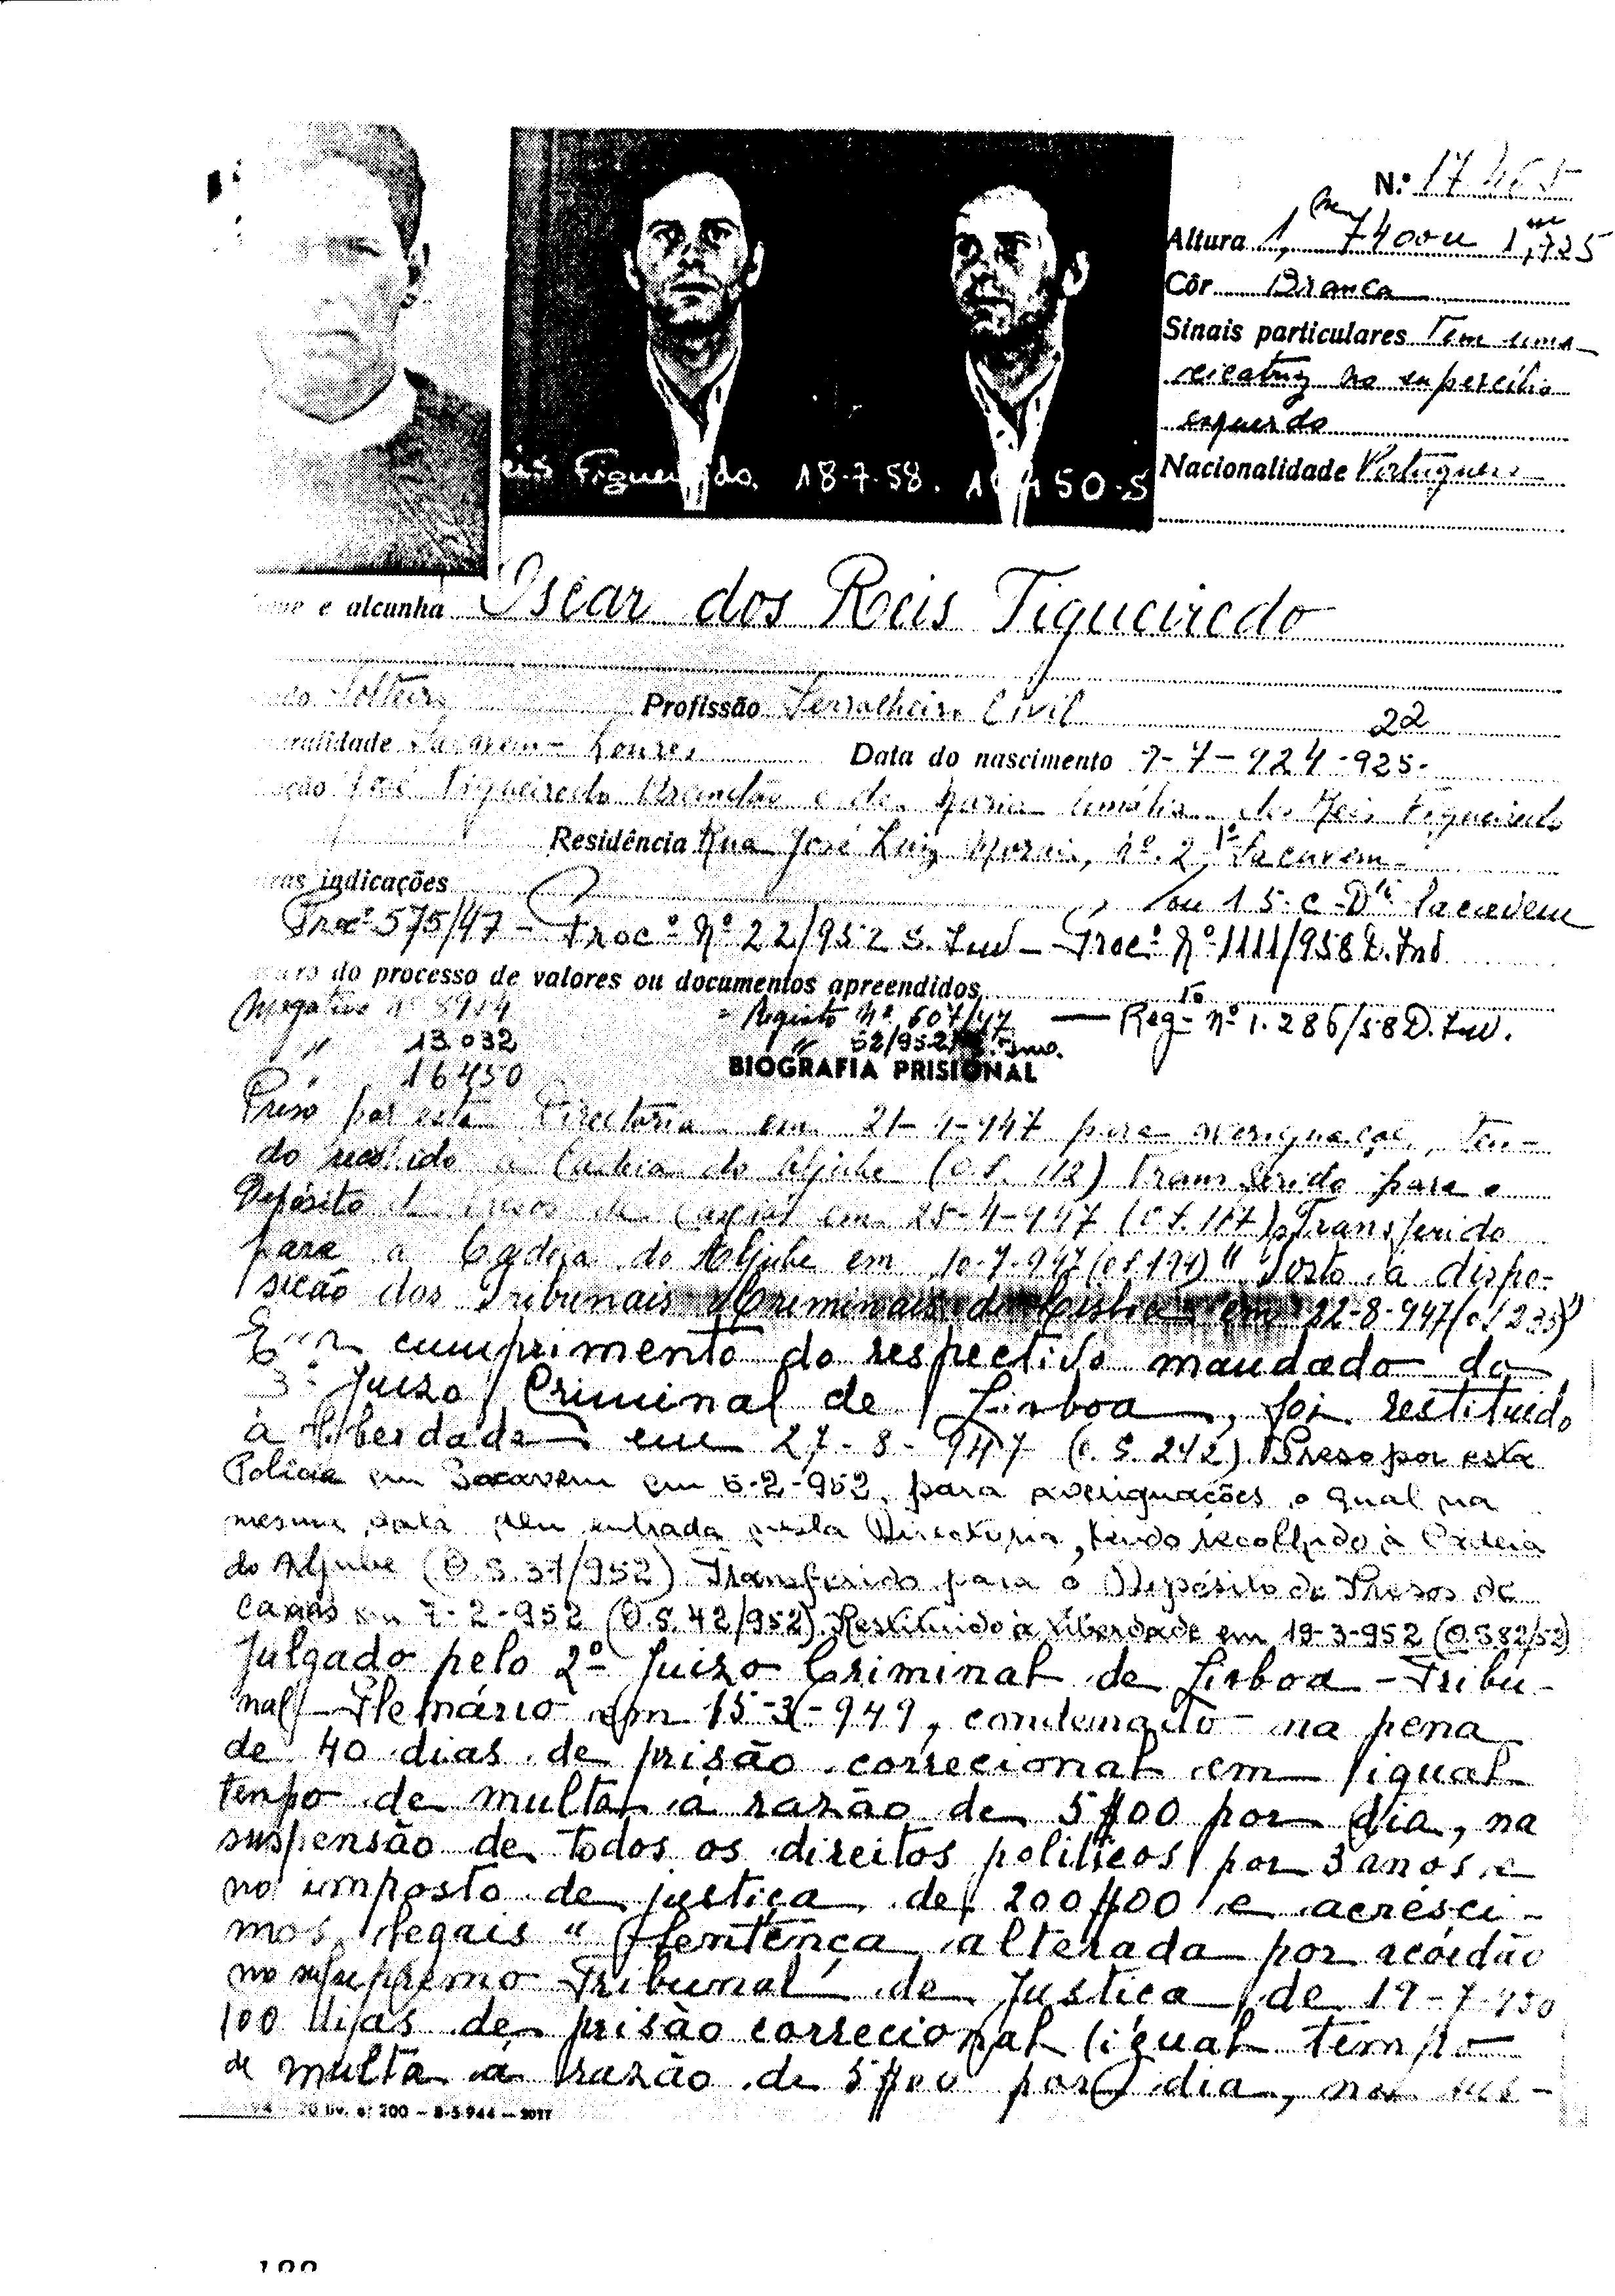 N.º 17465
Altura 1,m 7400u 1,m725
Côr Branca
Sinais particulares Tem uma
cicatriz no supercílio
esquerdo
Nacionalidade Portuguesa
eis Figueiredo. 18-7-58. 16450-S
e alcunha Oscar dos Reis Figueiredo
Solteiro Profissão Serralheiro Civil
22
ralidade Sacavem - Loures Data do nascimento 9-7-924-925-
ção José Figueiredo Brandão e de Maria Amália dos Reis Figueiredo
Residência Rua José Luiz Morais, nº. 2, 1º Sacavem
ras indicações
ou 15-c-Dtº Sacavem
Procº 575/47 - Procº Nº 22/952 S. Inv - Procº Nº 1111/958 D. Inv
do processo de valores ou documentos apreendidos
Negativo nº 8914 - Registo Nº 607/47 — Regto nº 1.286/58 D. Inv.
" 13.032 " 52/952 S. Inv.
" 16450
BIOGRAFIA PRISIONAL
Preso por esta Directoria em 21-4-947 para averiguações, ten-
do recolhido à Cadeia do Aljube (O.S. 112) Transferido para o
Depósito de Presos de Caxias em 25-4-947 (O.S. 117). Transferido
para a Cadeia do Aljube em 10-7-947 (O.S. 194) " Posto à dispo-
sição dos Tribunais Criminais de Lisboa em 22-8-947 (O.S. 235)"
Em cumprimento do respectivo mandado do
3º Juizo Criminal de Lisboa, foi restituido
à liberdade em 27-8-947 (O.S. 242). Preso por esta
Policia em Sacavem em 5-2-952, para averiguações, o qual na
mesma data deu entrada nesta Directoria, tendo recolhido à Cadeia
do Aljube (O.S. 37/952) Transferido para o Depósito de Presos de
Caxias em 7-2-952 (O.S. 42/952). Restituido à liberdade em 19-3-952 (O.S 82/52)
Julgado pelo 2º Juizo Criminal de Lisboa - Tribu-
nal Plenário em 15-3-949, condenado na pena
de 40 dias de prisão correcional em igual
tempo de multa à razão de 5$00 por dia, na
suspensão de todos os direitos politicos por 3 anos e
no imposto de justiça de 200$00 e acrésci-
mos legais " Sentença alterada por acórdão
no Supremo Tribunal de Justiça de 19-7-950
100 dias de prisão correcional igual tempo
de multa à razão de 5$00 por dia, na sus-
20 liv. a 200 - 8-5-944 - 2077